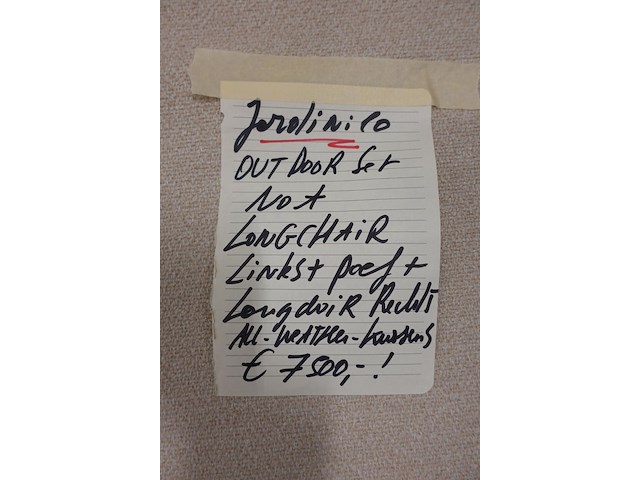 Jardinico
OUTDOOR Set
NOA
LONGCHAIR
Links + poef +
Longchair Rechts
All-weather-kussens
€ 7500,-!